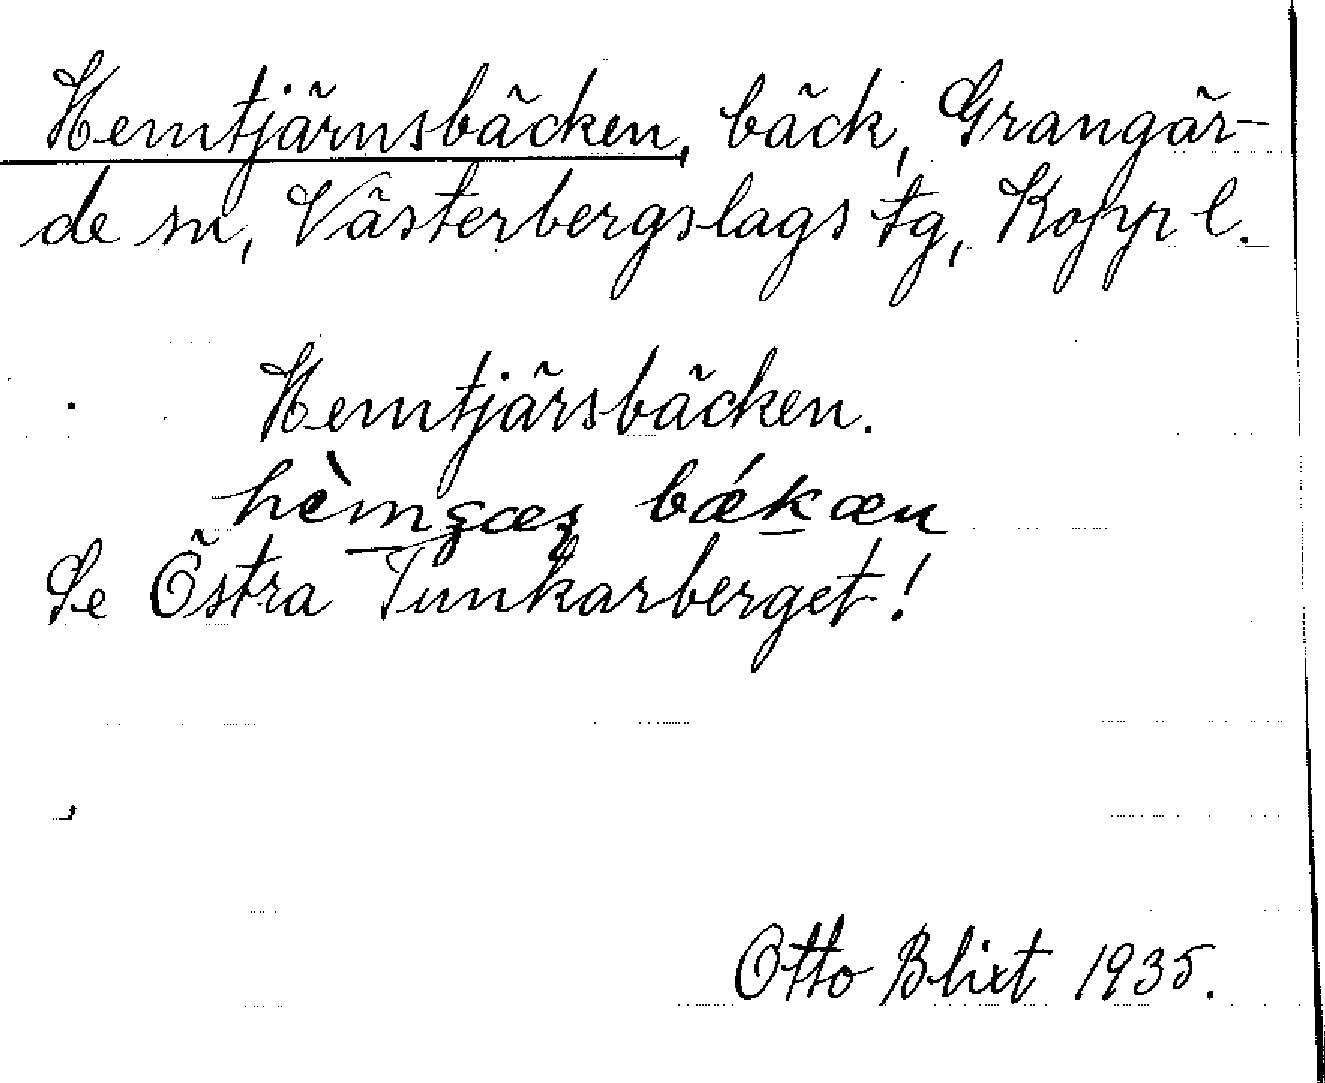 Hemtjärnsbäcken, bäck, Grangär-
de sn, Västerbergslags tg, Kopp l.
Hemtjärsbäcken.
Se Östra Tunkarberget!
Otto Blixt 1935.